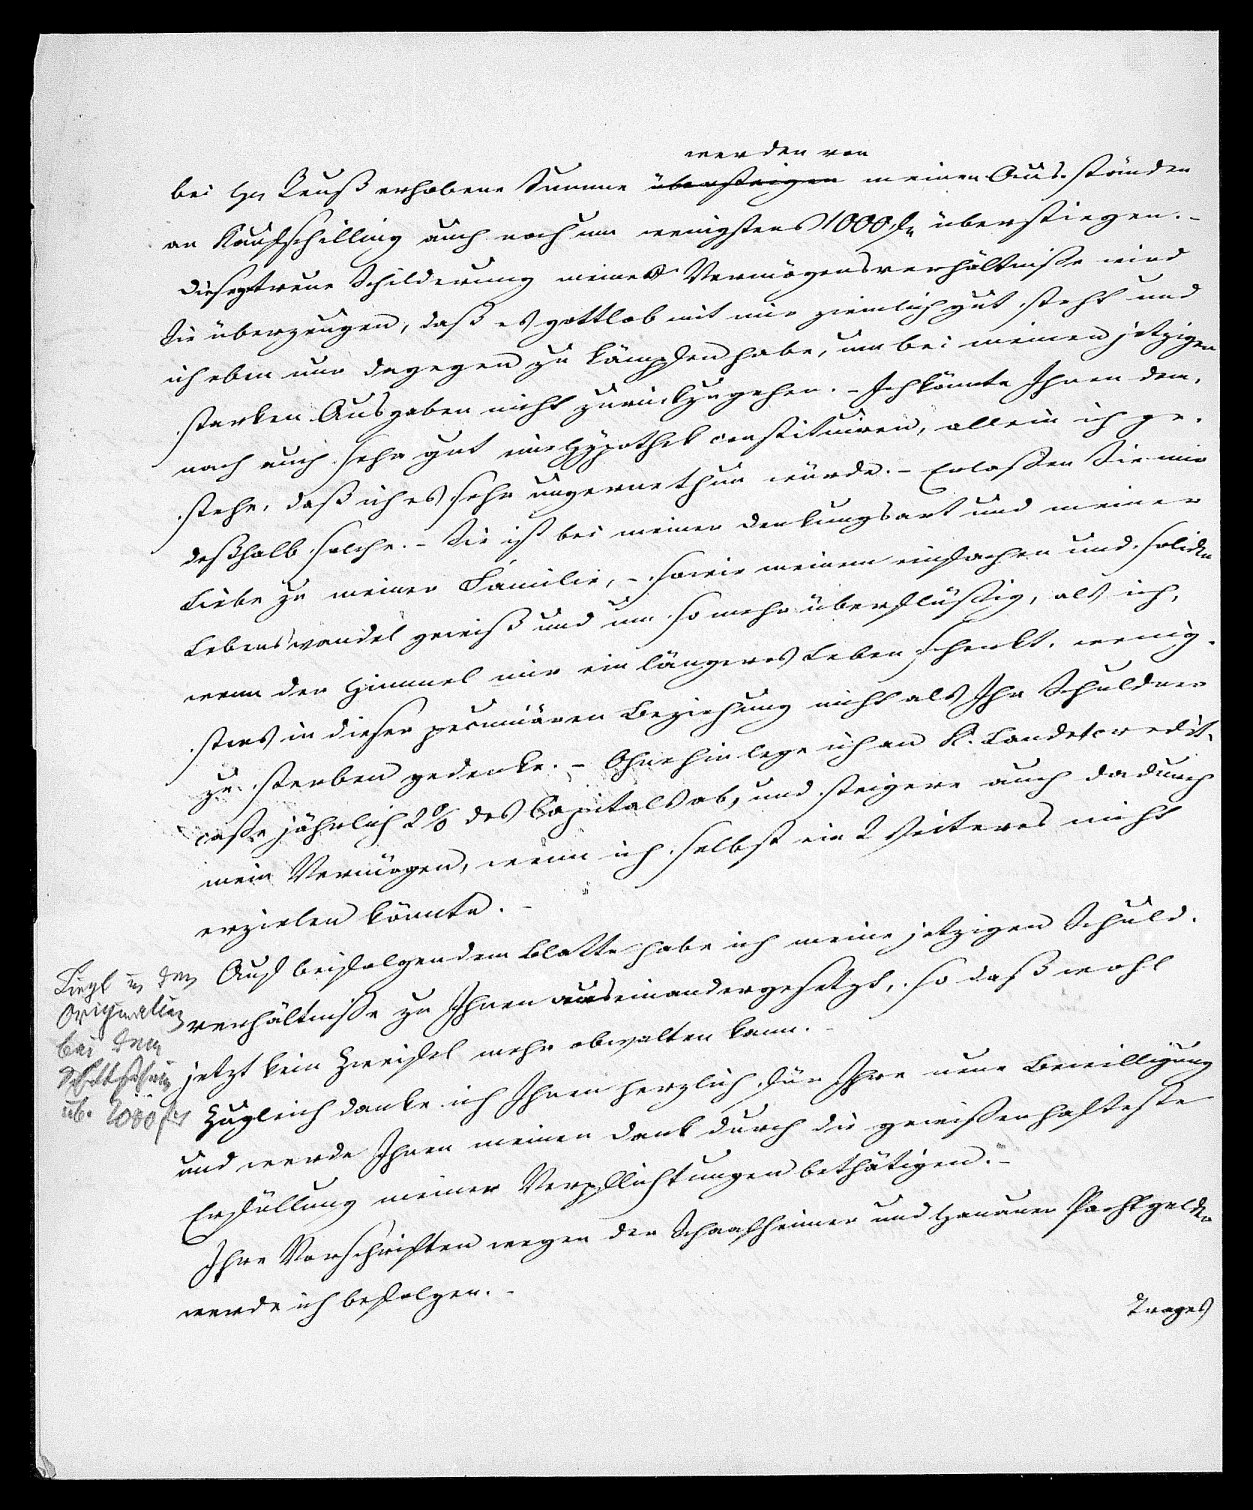 werden von
bei Hrn Reuß erhobene Summe übersteigen meinen Ausständen
an Kaufschilling auch noch um wenigstens 1000 fl. überstiegen. -
Diese getreue Schilderung meines Vermögensverhältnisse wird
Sie überzeugen, daß es gottlob mit mir ziemlich gut steht und
ich eben nur dagegen zu kämpfen habe, um bei meinen jetzigen
starken Ausgaben nicht zurückzugehen. - Ich könnte Ihnen dem-
nach auch sehr gut eine Hypothek constituiren, allein ich ge-
stehe, daß ich es sehr ungerne thun würde. - Erlaßen Sie mir
deßhalb solche. - Sie ist bei meiner Denkungsart und meiner
Liebe zu meiner Familie, - sowie meinem einfachen und soliden
Lebenswandel gewiß und um so mehr überflüßig, als ich,
wenn der Himmel mir ein längeres Leben schenkt, wenig-
stens in dieser pecuniären Beziehung nicht als Ihr Schuldner
zu sterben gedenke. - Ohnehin lege ich an K. Landescredit-
casse jährlich 2 % des Capitals ab, und steigere auch dadurch
mein Vermögen, wenn ich selbst ein Weiteres nicht
erzielen könnte. -
Auf beifolgendem Blatte habe ich meine jetzigen Schuld-
verhältniße zu Ihnen auseinandergesetzt, so daß wohl
jetzt kein Zweifel mehr obwalten kann. -
Zugleich danke ich Ihnen herzlich für Ihre neue Bewilligung
und werde Ihnen meinen Dank durch die gewißenhafteste
Erfüllung meiner Verpflichtungen bethätigen. -
Ihre Vorschriften wegen der Schaafheimer und Hanauer Pachtgelder
werde ich befolgen. -
Trages
Liegt in den
Originalien
bei dem
üb. 2000 fl